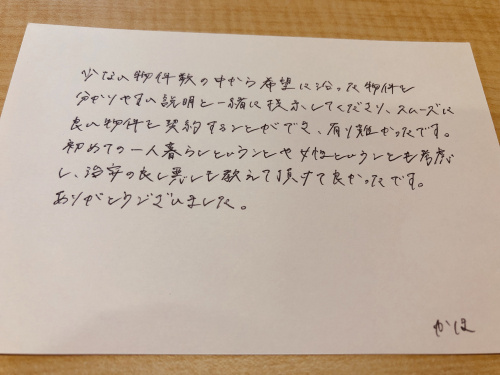 少ない物件数の中から希望に沿った物件を
分かりやすい説明と一緒に提示してくださり、スムーズに
良い物件を契約することができ、有り難かったです。
初めての一人暮らしということや女性ということも考慮
し、治安の良し悪しも教えて頂けて良かったです。
ありがとうございました。
かほ